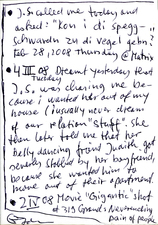 J.S called me today and
asked: "kon i di spegg-
schwardn zu di vegel gebn?
Feb 28, 2008 Thursday @ Matrix
4 III 08 Dreamt yesterday that
Tuesday
J.S was chasing me be-
cause i wanted her out of my
house (i usually never dream
of our relation "stuff". she
then later told me that her
belly dancing from Judith got
severely stabbed by her boyfriend,
because she wanted him to
move out of their apartment
2 IV 08 Movie "Gigantic" shot
at 319 Grand
Pain of people